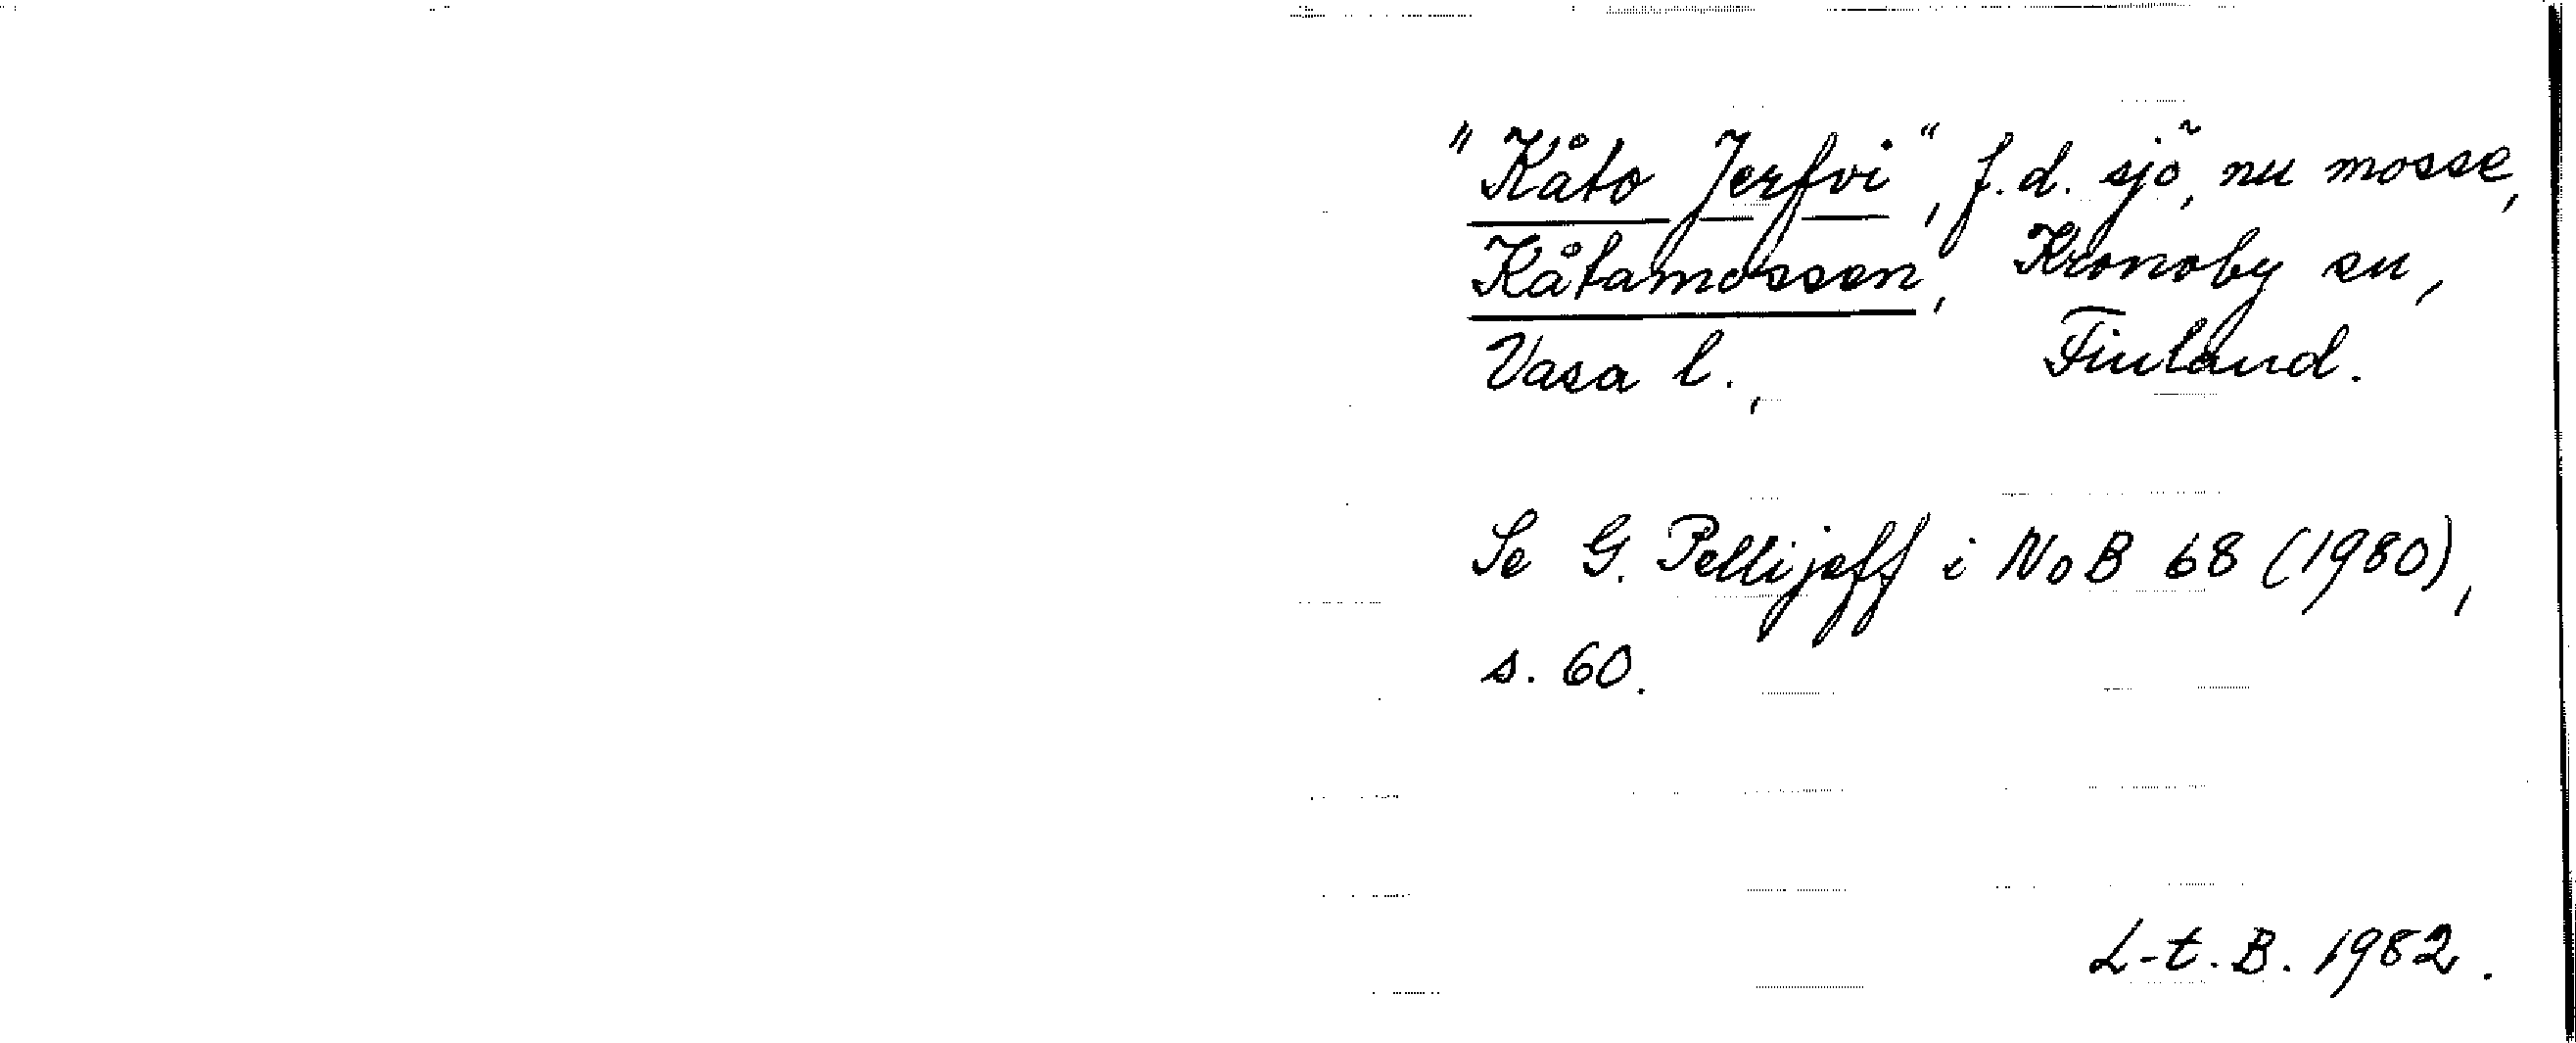 "Kåto Jerfvi", f.d. sjö, nu mosse,
Kåtamossen, Kronoby sn,
Vasa l., Finland.
Se G. Pellijeff i NoB 68 (1980),
s. 60.
L-t. B. 1982.